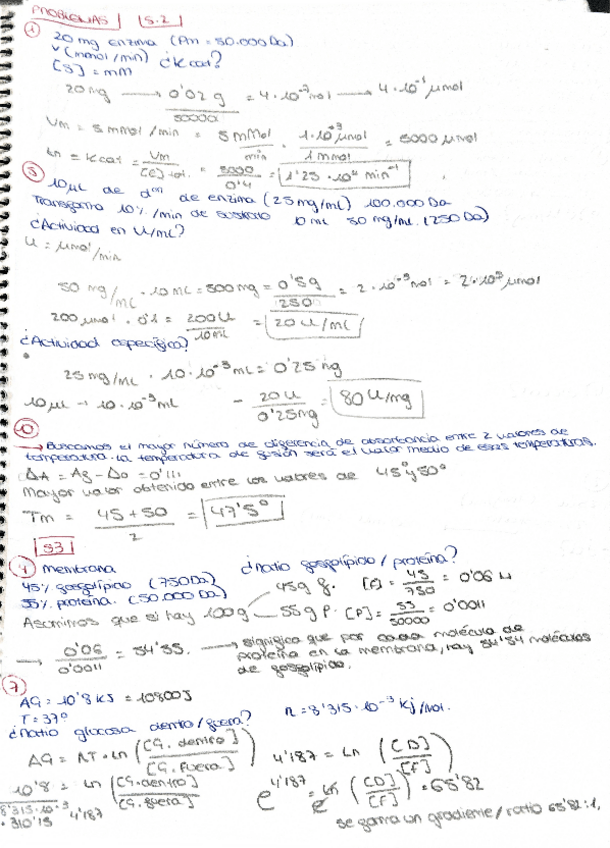 PROBLEMAS S.2
① 20 mg enzima (Pm = 50.000 Da)
V (mmol/min) ¿Kcat?
[S] = mM
20 mg → 0'02 g / 50000 = 4·10⁻⁷ mol → 4·10⁻¹ μmol
Vm = 5 mmol/min = 5 mmol / min · 1·10⁺³ μmol / 1 mmol = 5000 μmol
Kcat = Vm / [E] tot. = 5000 / 0'4 = 1'25·10⁴ min⁻¹
⑤ 10 μL de don de enzima (25 mg/ml) 100.000 Da
Transforma 10%/min de sustrato 10 mL 50 mg/mL. (250 Da)
¿Actividad en U/mL?
U = μmol/min
50 mg/mL · 10 mL = 500 mg = 0'5 g / 250 = 2·10⁻³ mol = 2·10³ μmol
200 μmol · 0'1 = 200 U / 10 mL = 20 U/mL
¿Actividad específica?
25 mg/mL · 10·10⁻³ mL = 0'25 mg
10 μL → 10·10⁻³ mL - 20 U / 0'25 mg = 80 U/mg
⑩
→ Buscamos el mayor número de diferencia de absorbancia entre 2 valores de
temperatura. La temperatura de fusión será el valor medio de esas temperaturas.
ΔA = Ag - A0 = 0'111
Mayor valor obtenido entre los valores de 45° y 50°
Tm = 45 + 50 / 2 = 47'5°
S3
④ membrana ¿ratio fosfolípido / proteína?
45% fosfolípido (750 Da) 45 g f. [F] = 45 / 750 = 0'06 M
55% proteína. (50.000 Da)
Asumimos que si hay 100 g 55 g P. [P] = 55 / 50000 = 0'0011
→ 0'06 / 0'0011 = 54'55. → significa que por cada molécula de
proteína en la membrana, hay 54'54 moléculas
de fosfolípido.
⑦
ΔG = 10'8 kJ = 10800 J
T = 37° R = 8'315·10⁻³ kj/mol.
¿Ratio glucosa dentro/fuera?
ΔG = RT·Ln ([G. dentro] / [G. Fuera]) 4'187 = Ln ([D] / [F])
10'8 / 8'315·10⁻³ · 310'15 = Ln ([G. dentro] / [G. fuera]) e^4'187 = ([D] / [F]) = 65'82
4'187
se forma un gradiente/ratio 65'82:1,